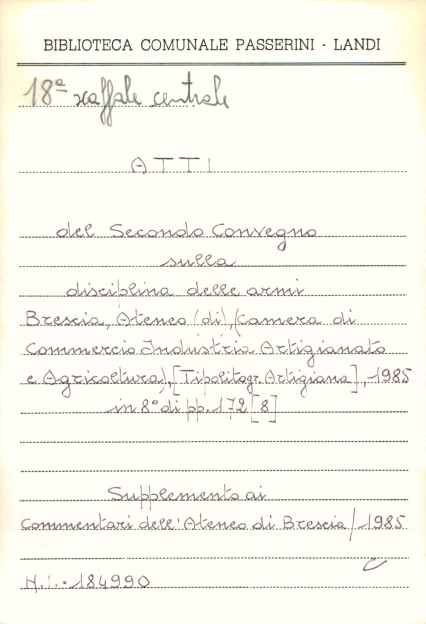 BIBLIOTECA COMUNALE PASSERINI - LANDI
18ª scaffale centrale
ATTI
del Secondo Convegno
sulla
disciplina delle armi
Brescia, Ateneo (di), (Camera di
Commercio Industria Artigianato
e Agricoltura), [Tipolitogr. Artigiana], 1985
in 8° di pp. 172 [8]
Supplemento ai
Commentari dell'Ateneo di Brescia / 1985
N.I. 184990